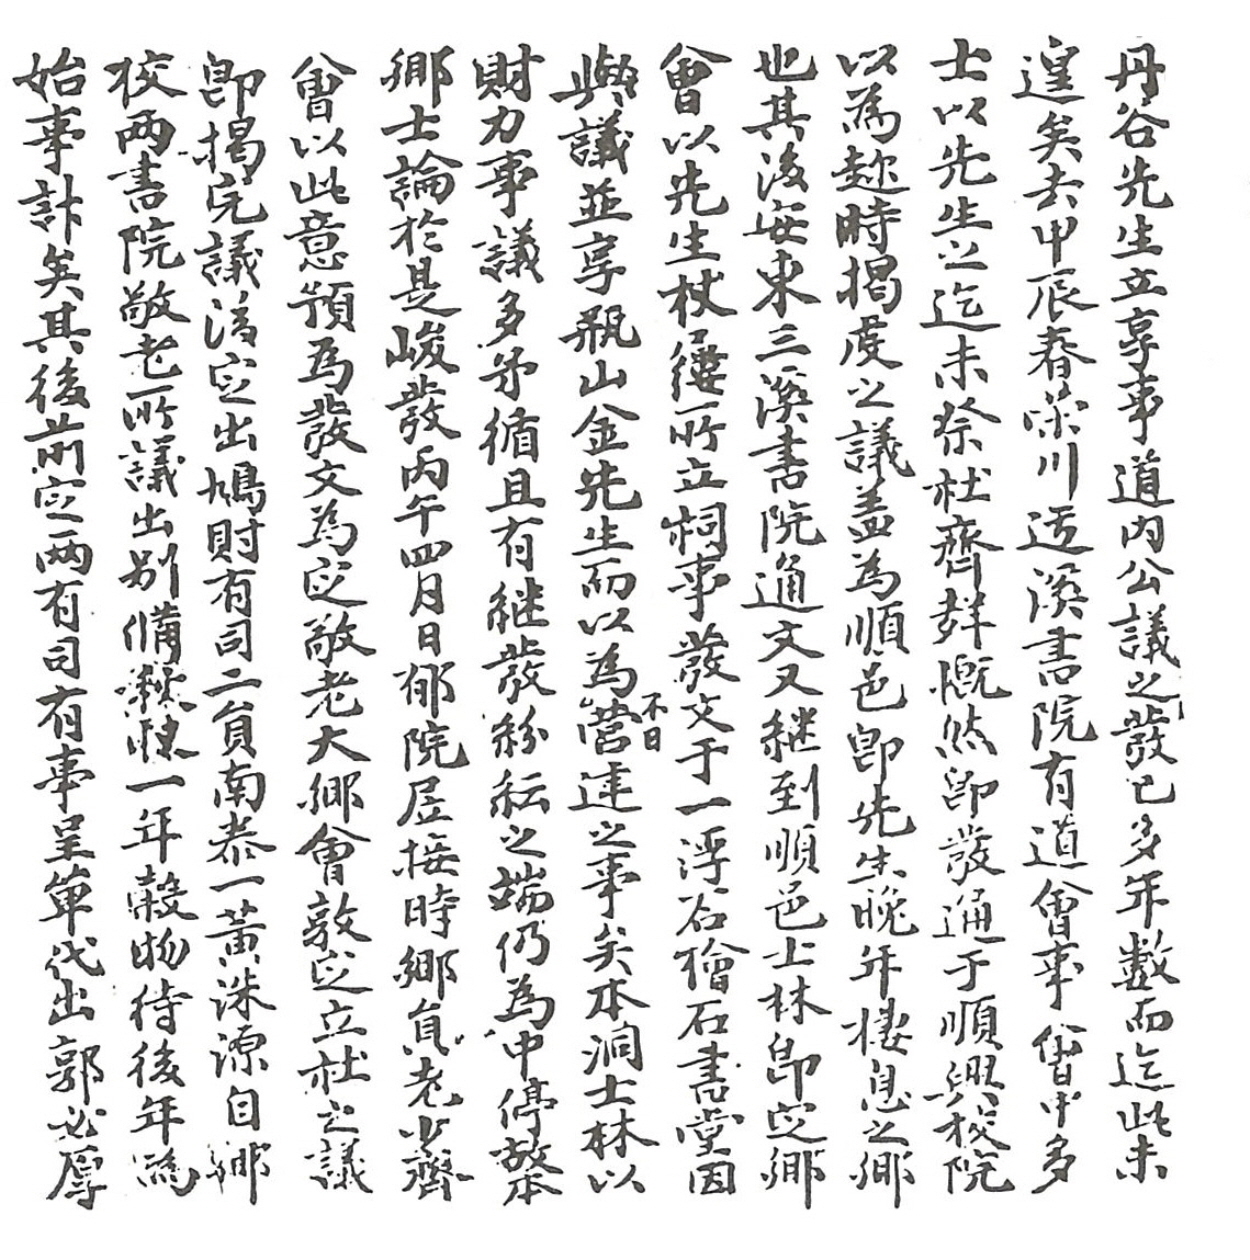 丹谷先生立享事道內公議之發已多年數而迄此未
遑矣去甲辰春榮川迃溪書院有道會事會中多
士以先生之迄未祭社齊群慨然卽發通于順興校院
以爲趂時揭虔之議盖爲順邑卽先生晚年棲息之鄕
也其後安東三溪書院通文又継到順邑士林卽定鄕
會以先生杖屨所立祠事發文于一浮石檜石書堂因
與議並享甁山金先生而以爲不日營建之事矣本洞士林以
財力事議多矛循且有継發紛紜之端仍爲中停故本
鄕士論於是峻發丙午四月日鄕院居接時鄕員老少齊
會以此意預爲發文爲定敬老大鄕會敦定立社之議
卽揭完議後定出鳩財有司二員南泰一黃洙源自鄕
校兩書院敬老所議出別備一年穀物待後年爲
始事計矣其後前定兩有司有事呈單代出郭必厚